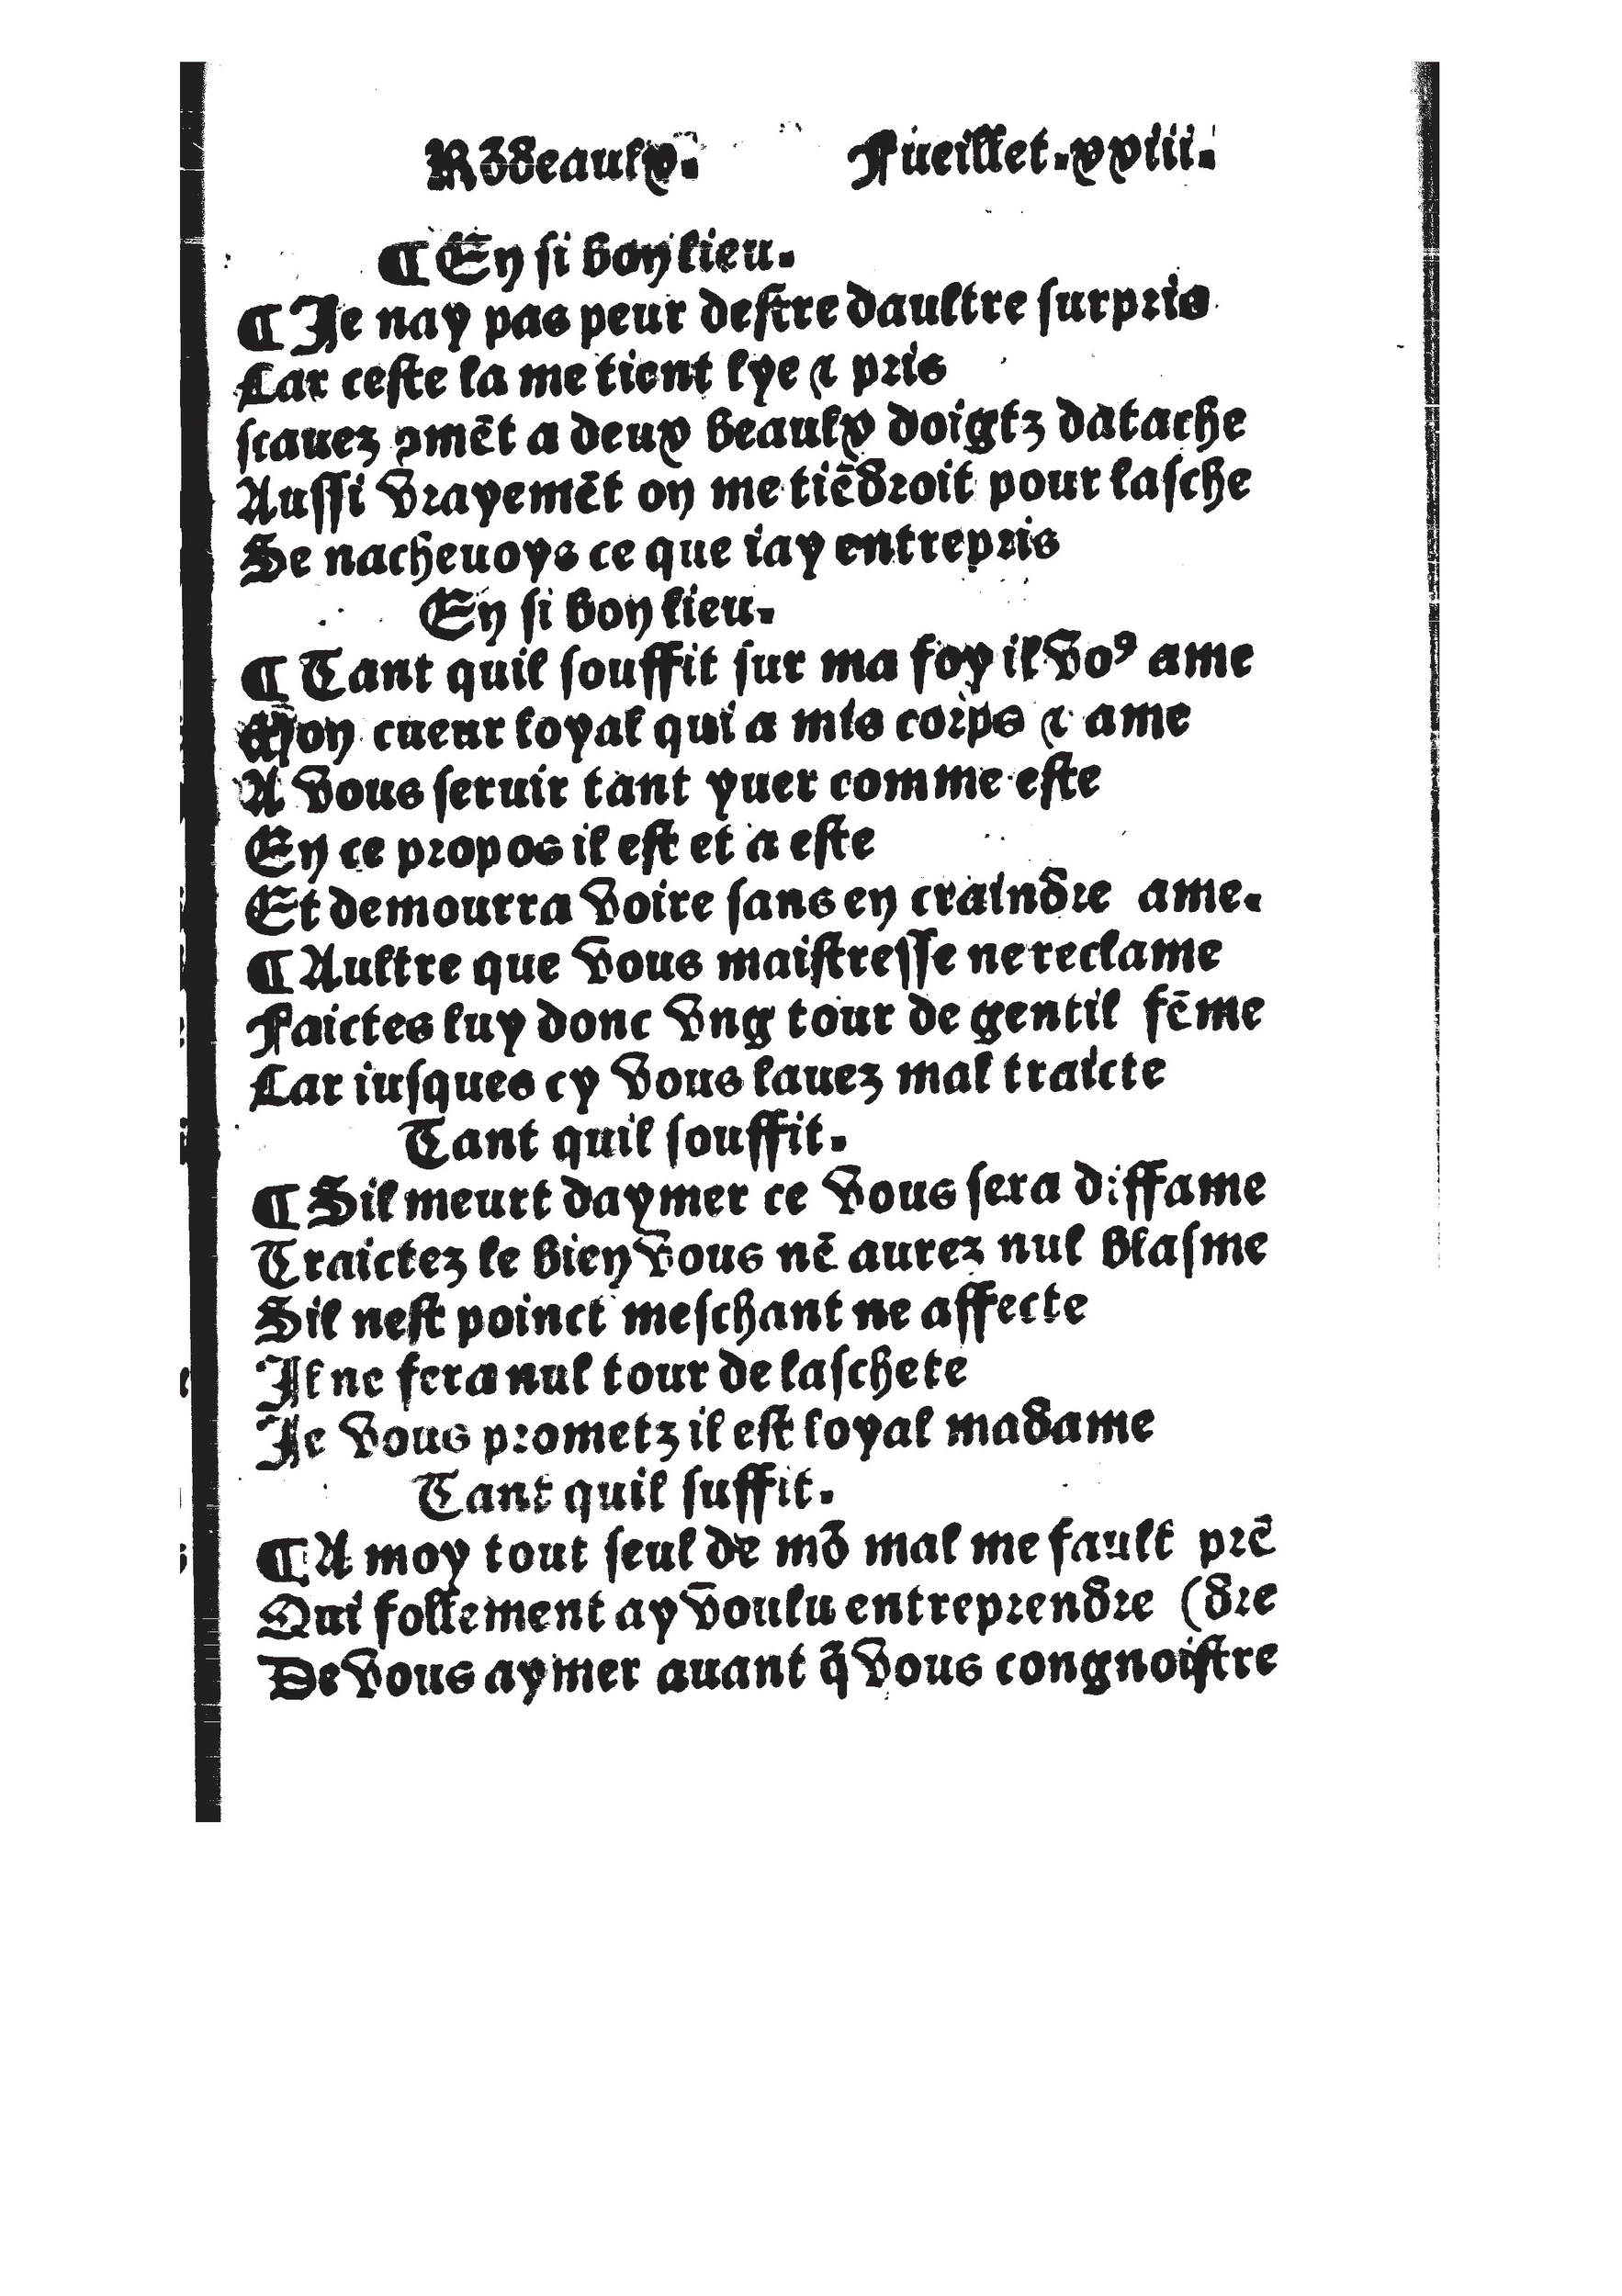 Rõdeaulx. Fueillet.xxiii.
¶ En si bon lieu.
¶ Je nay pas peur destre daultre surpris
Car ceste la me tient lye ⁊ pris
scauez ꝯmẽt a deux beaulx doigtz datache
Aussi vrayemẽt on me tiẽdroit pour lasche
Se nacheuoys ce que iay entrepris
En si bon lieu.
¶ Tant quil souffit sur ma foy il voꝰ ame
Mon cueur loyal qui a mis corps ⁊ ame
A vous seruir tant yuer comme este
En ce propos il est et a este
Et demourra voire sans en craindre ame.
¶ Aultre que vous maistresse ne reclame
Faictes luy donc vng tour de gentil fẽme
Car iusques cy vous lauez mal traicte
Tant quil souffit.
¶ Sil meurt daymer ce vous sera diffame
Traictez le bien vous nẽ aurez nul blasme
Sil nest poinct meschant ne affecte
Il ne fera nul tour de laschete
Je vous prometz il est loyal madame
Tant quil suffit.
¶ A moy tout seul de mõ mal me fault prẽ
Qui follement ay voulu entreprendre (dre
De vous aymer auant q̃ vous congnoistre